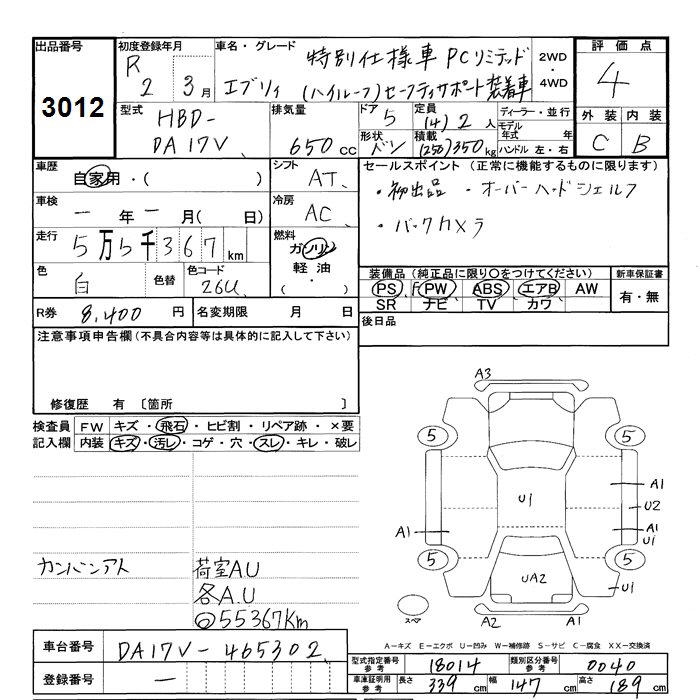 出品番号
3012
初度登録年月
R 2 3月
車名・グレード
特別仕様車 PCリミテッド
エブリィ (ハイルーフ)セーフティサポート装着車
2WD
・
4WD
評価点
4
外装 内装
C B
型式
HBD-
DA17V
排気量
650 cc
ドア
5
形状
バン
定員
(4) 2 人
積載
(250) 350 kg
ディーラー・並行
モデル
年式 年
ハンドル 左・右
車歴
自家用・( )
車検
ー 年 ー 月( 日)
走行
5万5千367 km
色
白
色替
色コード
26U
シフト
AT
冷房
AC
燃料
ガソリン
軽油
・
( )
セールスポイント (正常に機能するものに限ります)
・初出品 ・オーバーヘッドシェルフ
・バックカメラ
装備品 (純正品に限り○をつけてください)
PS PW ABS エアB AW
SR ナビ TV カワ
新車保証書
有・無
R券 8,400 円
名変期限 月 日
後日品
注意事項申告欄 (不具合内容等は具体的に記入して下さい)
修復歴 有 〔箇所 〕
検査員
記入欄
FW キズ・飛石・ヒビ割・リペア跡・×要
内装 キズ・汚レ・コゲ・穴・スレ・キレ・破レ
カンバンアト
荷室A.U
各A.U
◎55367Km
A3
5 5
A1
U1 U2
A1 A1
U1
5 5
UA2 U1
スペア
A2 A1
A-キズ E-エクボ U-凹み W-補修跡 S-サビ C-腐食 XX-交換済
車台番号 DA17V-465302
登録番号 ー
型式指定番号 参考 18014
類別区分番号 参考 0040
車庫証明用 参考 長さ 339 cm 幅 147 cm 高さ 189 cm